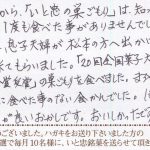 から、「いと忠の巣ごもり」は、知っ
1度も食べた事がありませんでし
息子夫婦が松本の方へ出かけ
てもらいました。「20回全国菓子大
賞受賞」の巣ごもりを食べました。まず
に食べた事のない食かんでした。
が良いおかしです。おいしかったで
ございました。ハガキをお送り下さいました方の
選で毎月10名様に、いと忠銘菓を送らせて頂き